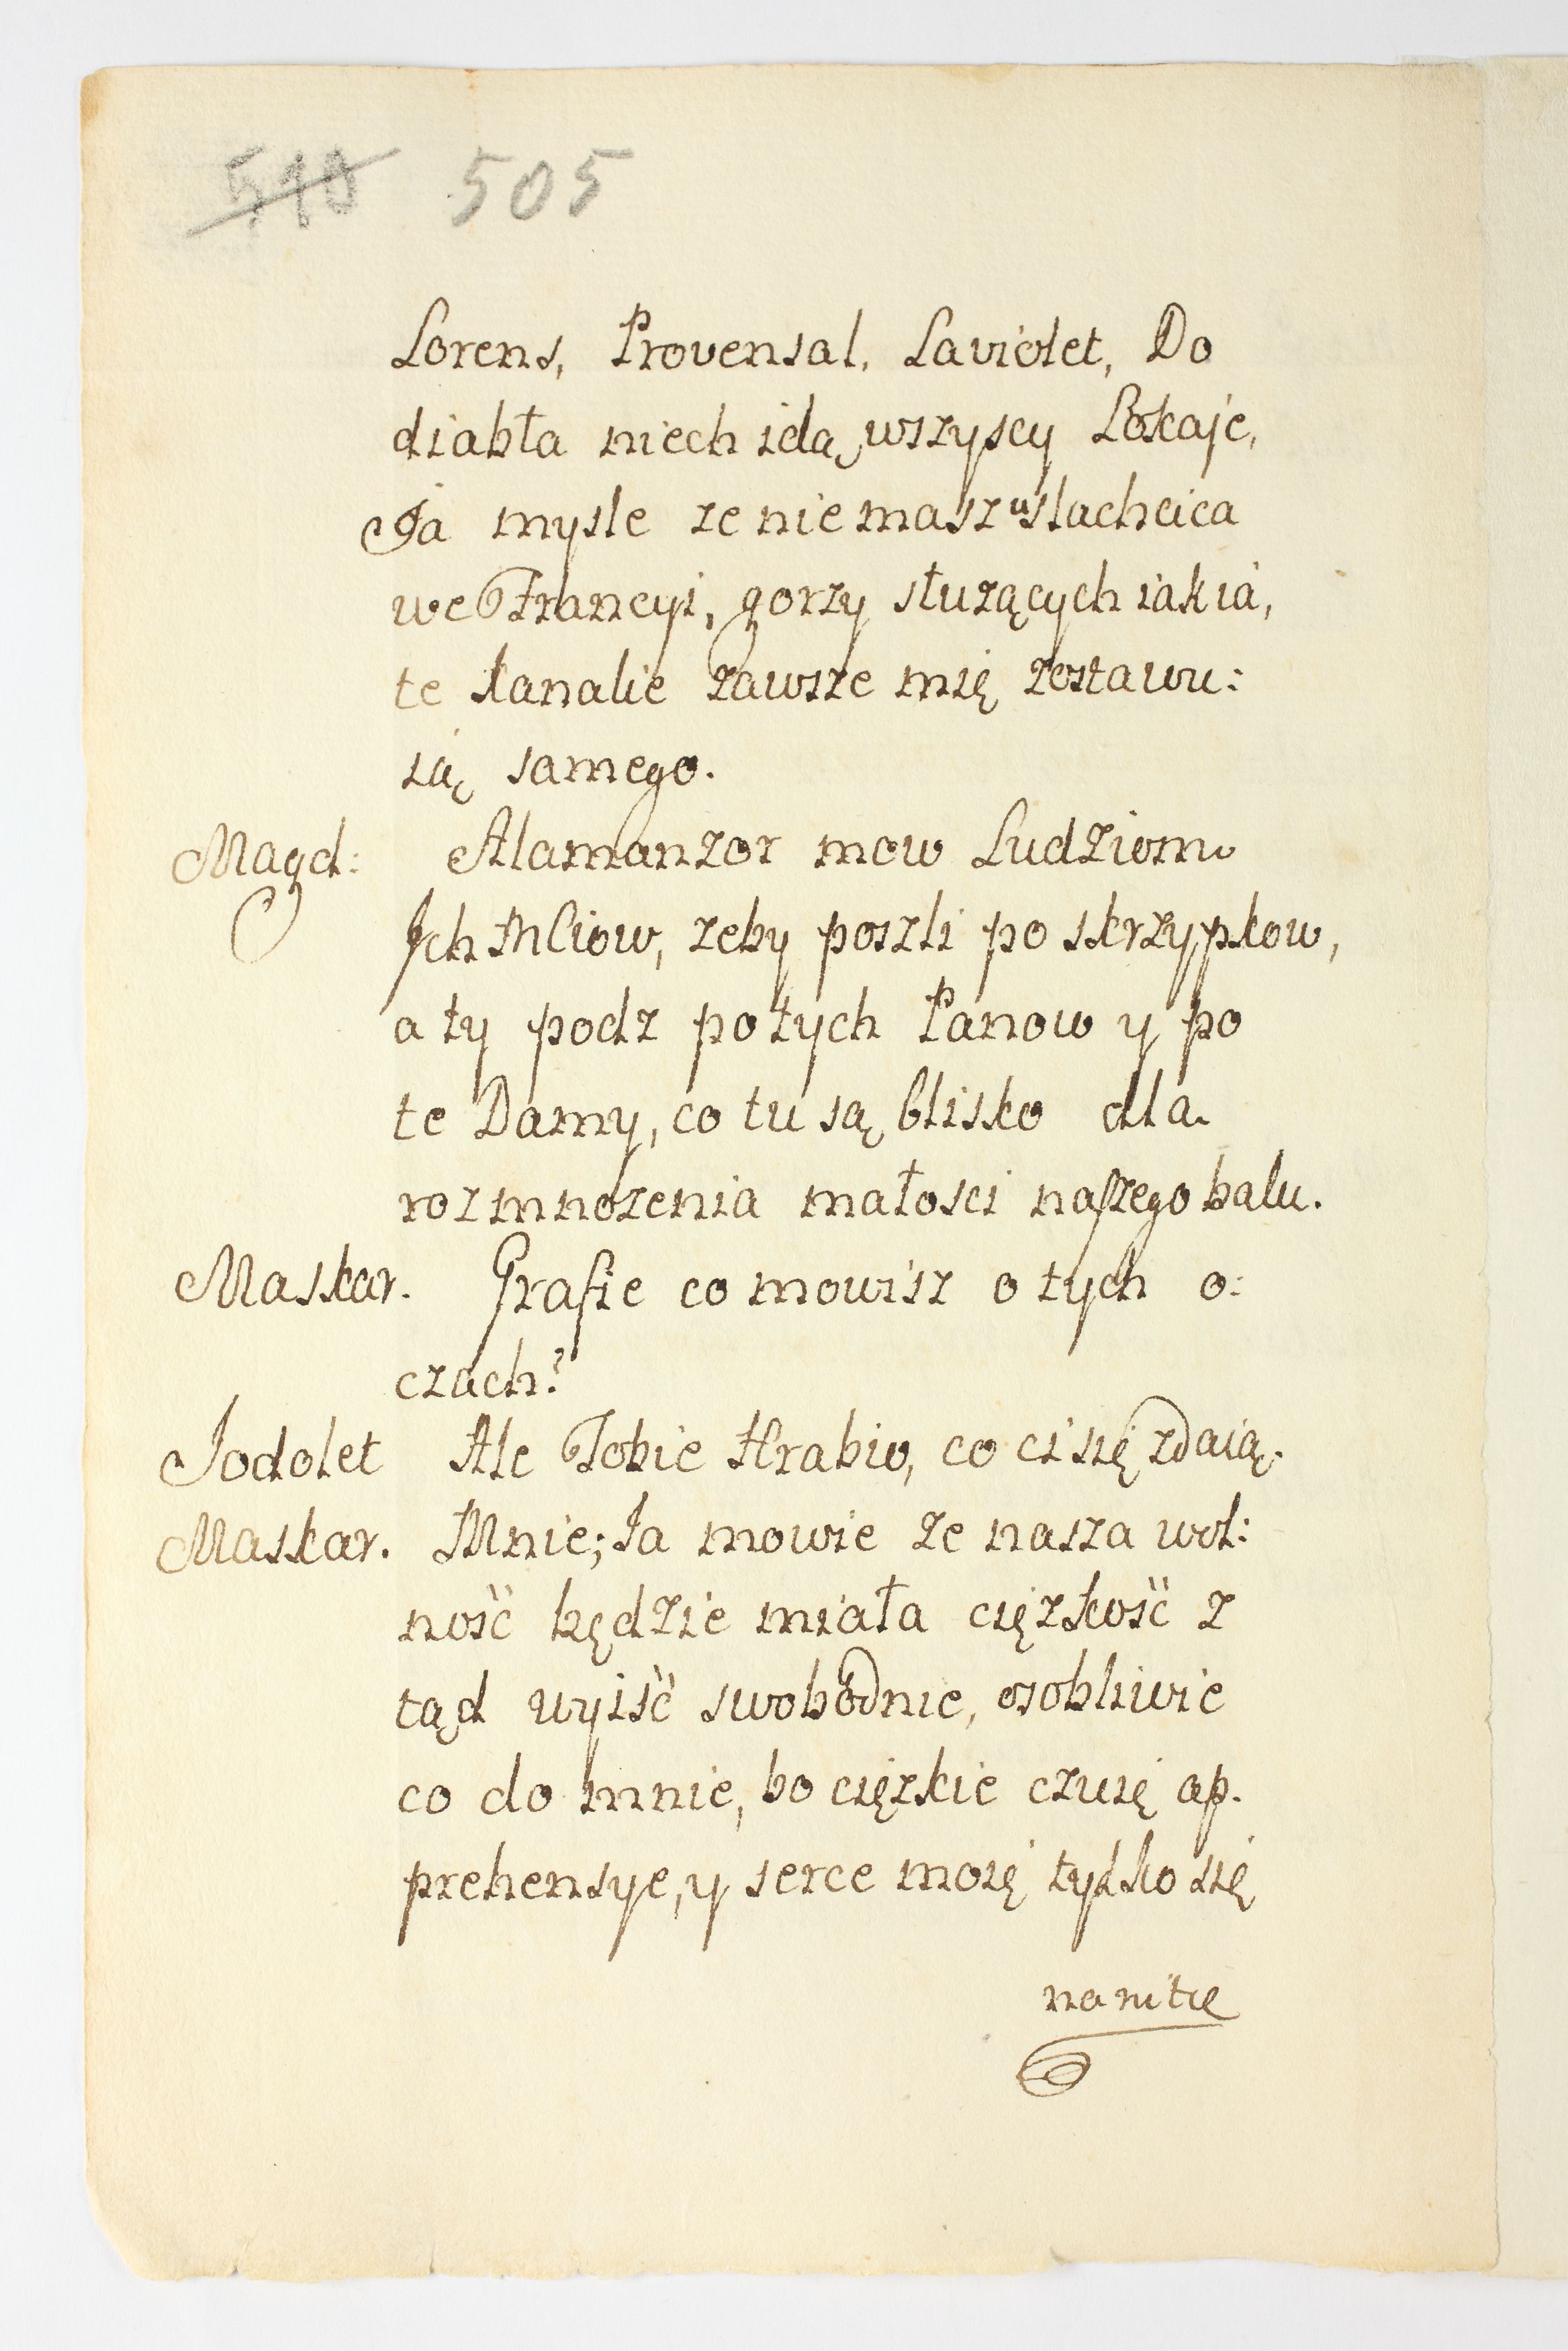 510 505
Lorens, Provensal, Laviolet, Do
diabła niech idą wszyscy Lokaje,
Ja mysle ze nie masz u slachcica
we Francyi, gorzy służących iak ia,
te kanalie zawsze mię zostawu:
ią samego.
Magd: Alamanzor mow Ludziom
Jch Mciow, zeby poszli po skrzypkow,
a ty podz po tych Panow y po
te Damy, co tu są blisko dla
rozmnozenia małosci naszego balu.
Maskar. Grafie co mowisz o tych o:
czach?
Jodolet Ale Tobie Hrabio, co ci się zdaią.
Maskar. Mnie; Ja mowie ze nasza wol:
ność będzie miała cięzkość z
tąd wyiść swobodnie, osobliwie
co do mnie, bo cięzkie czuię ap.
prehensye, y serce moię tylko się
na nitce